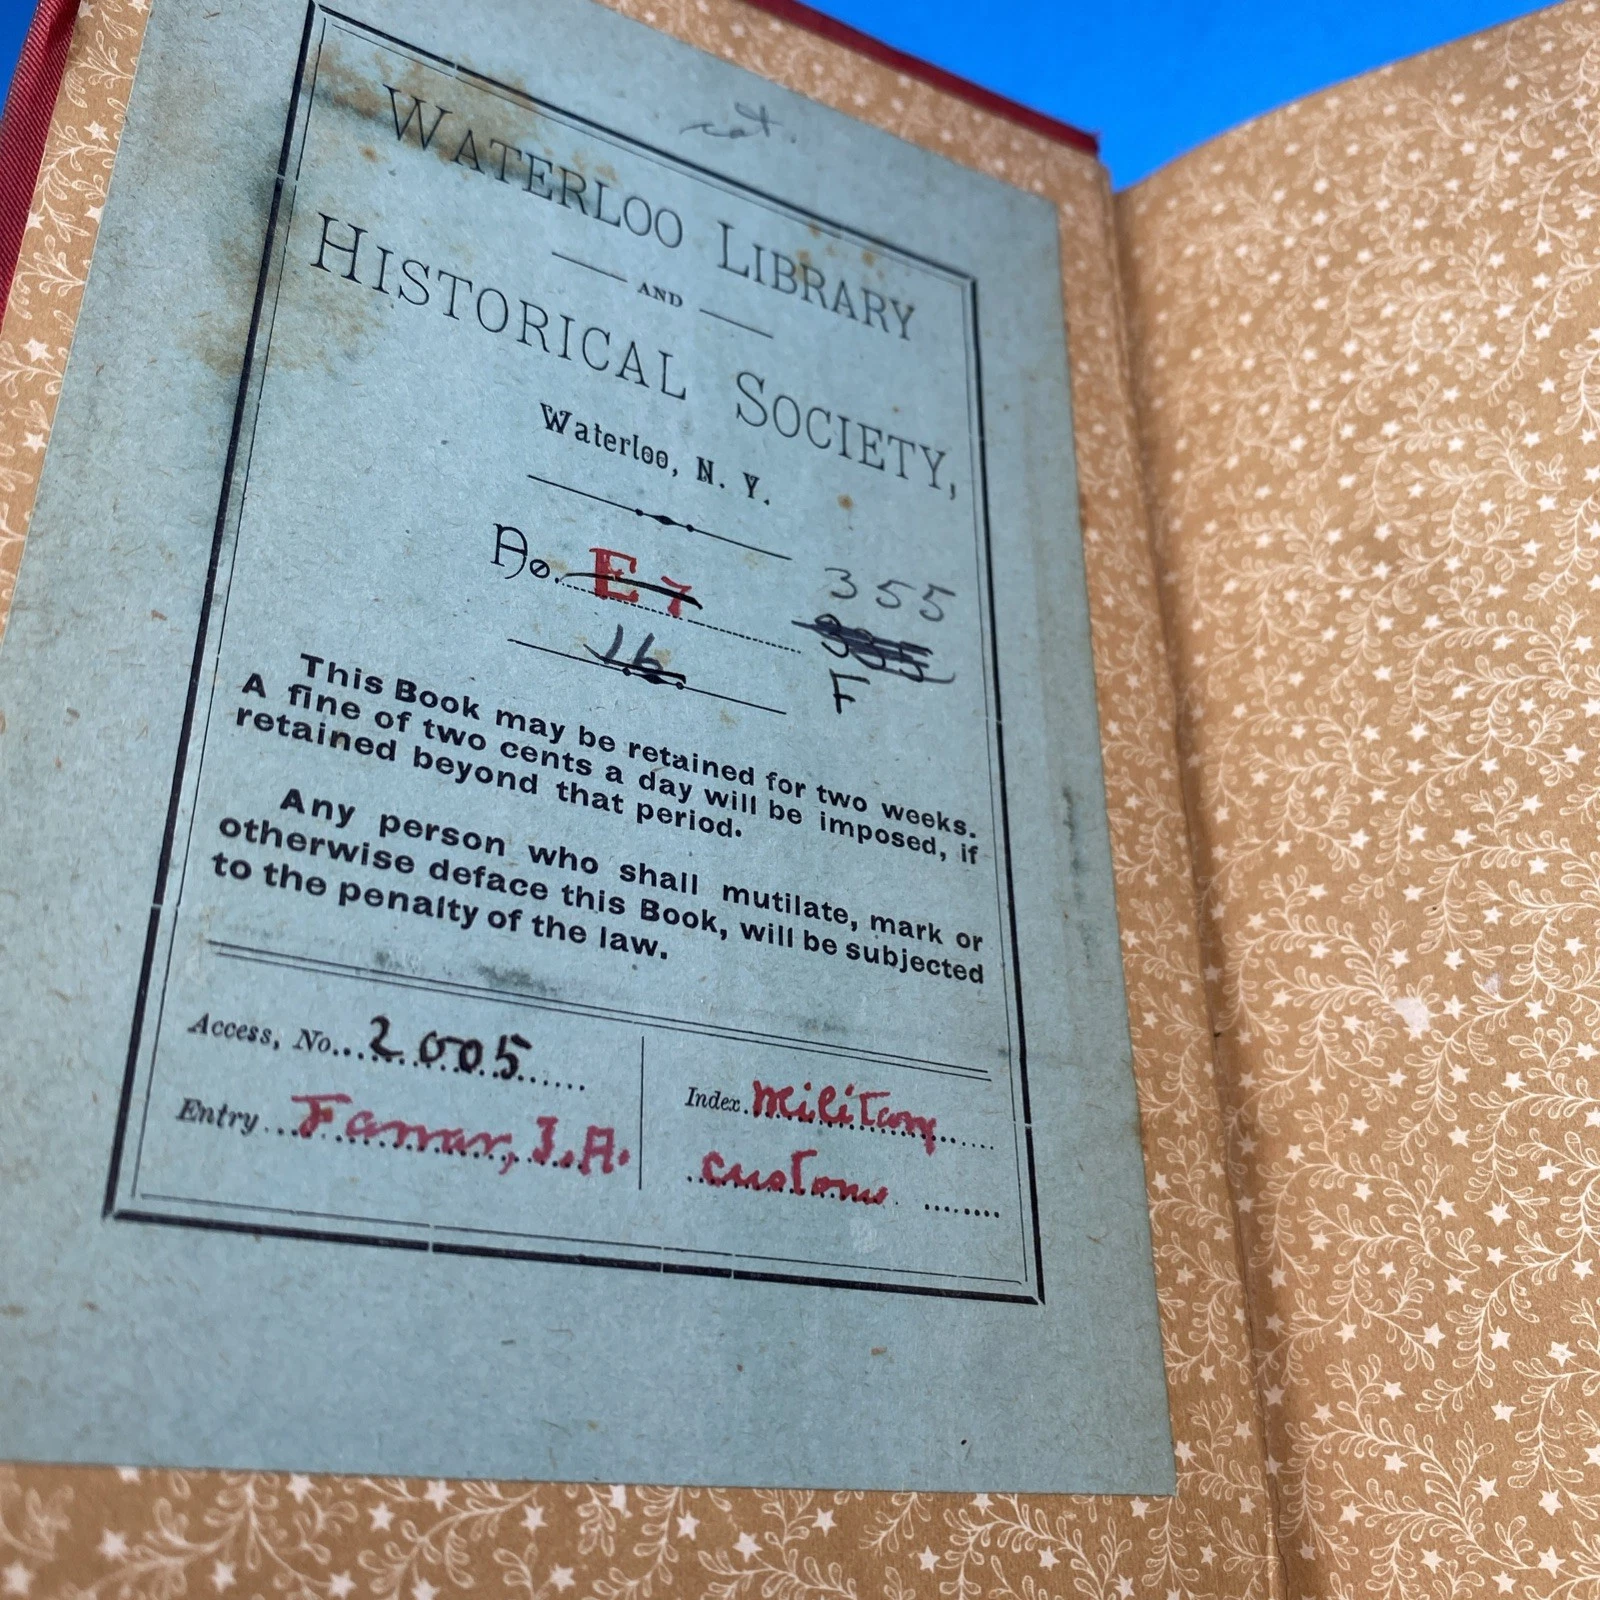 cat.
WATERLOO LIBRARY
AND
HISTORICAL SOCIETY,
Waterloo, N. Y.
No. E 7
355
335
16
F
This Book may be retained for two weeks.
A fine of two cents a day will be imposed, if
retained beyond that period.
Any person who shall mutilate, mark or
otherwise deface this Book, will be subjected
to the penalty of the law.
Access, No. 2005
Entry Farrar, J.A.
Index. Military
customs